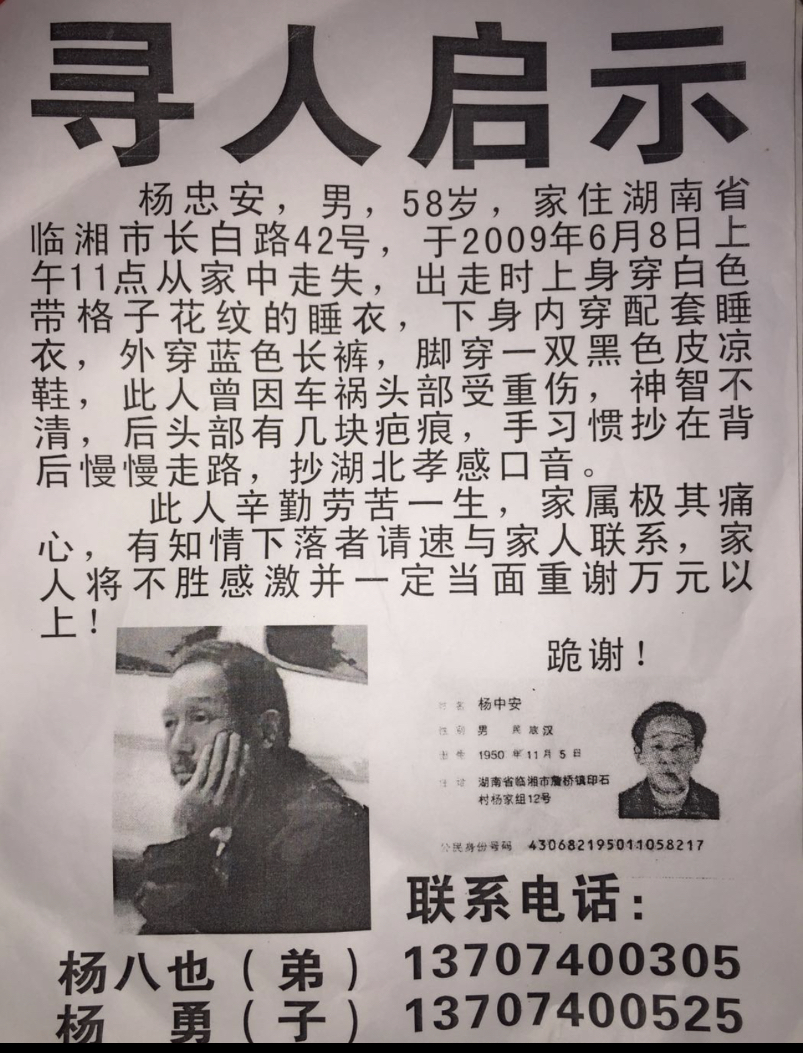 寻人启示
杨忠安，男，58岁，家住湖南省
临湘市长白路42号，于2009年6月8日上
午11点从家中走失，出走时上身穿白色
带格子花纹的睡衣，下身内穿配套睡
衣，外穿蓝色长裤，脚穿一双黑色皮凉
鞋，此人曾因车祸头部受重伤，神智不
清，后头部有几块疤痕，手习惯抄在背
后慢慢走路，抄湖北孝感口音。
此人辛勤劳苦一生，家属极其痛
心，有知情下落者请速与家人联系，家
人将不胜感激并一定当面重谢万元以
上！
跪谢！
姓名 杨中安
性别 男 民族 汉
出生 1950 年 11 月 5 日
住址 湖南省临湘市詹桥镇印石
村杨家组12号
公民身份号码 430682195011058217
联系电话：
杨八也（弟）13707400305
杨 勇（子）13707400525